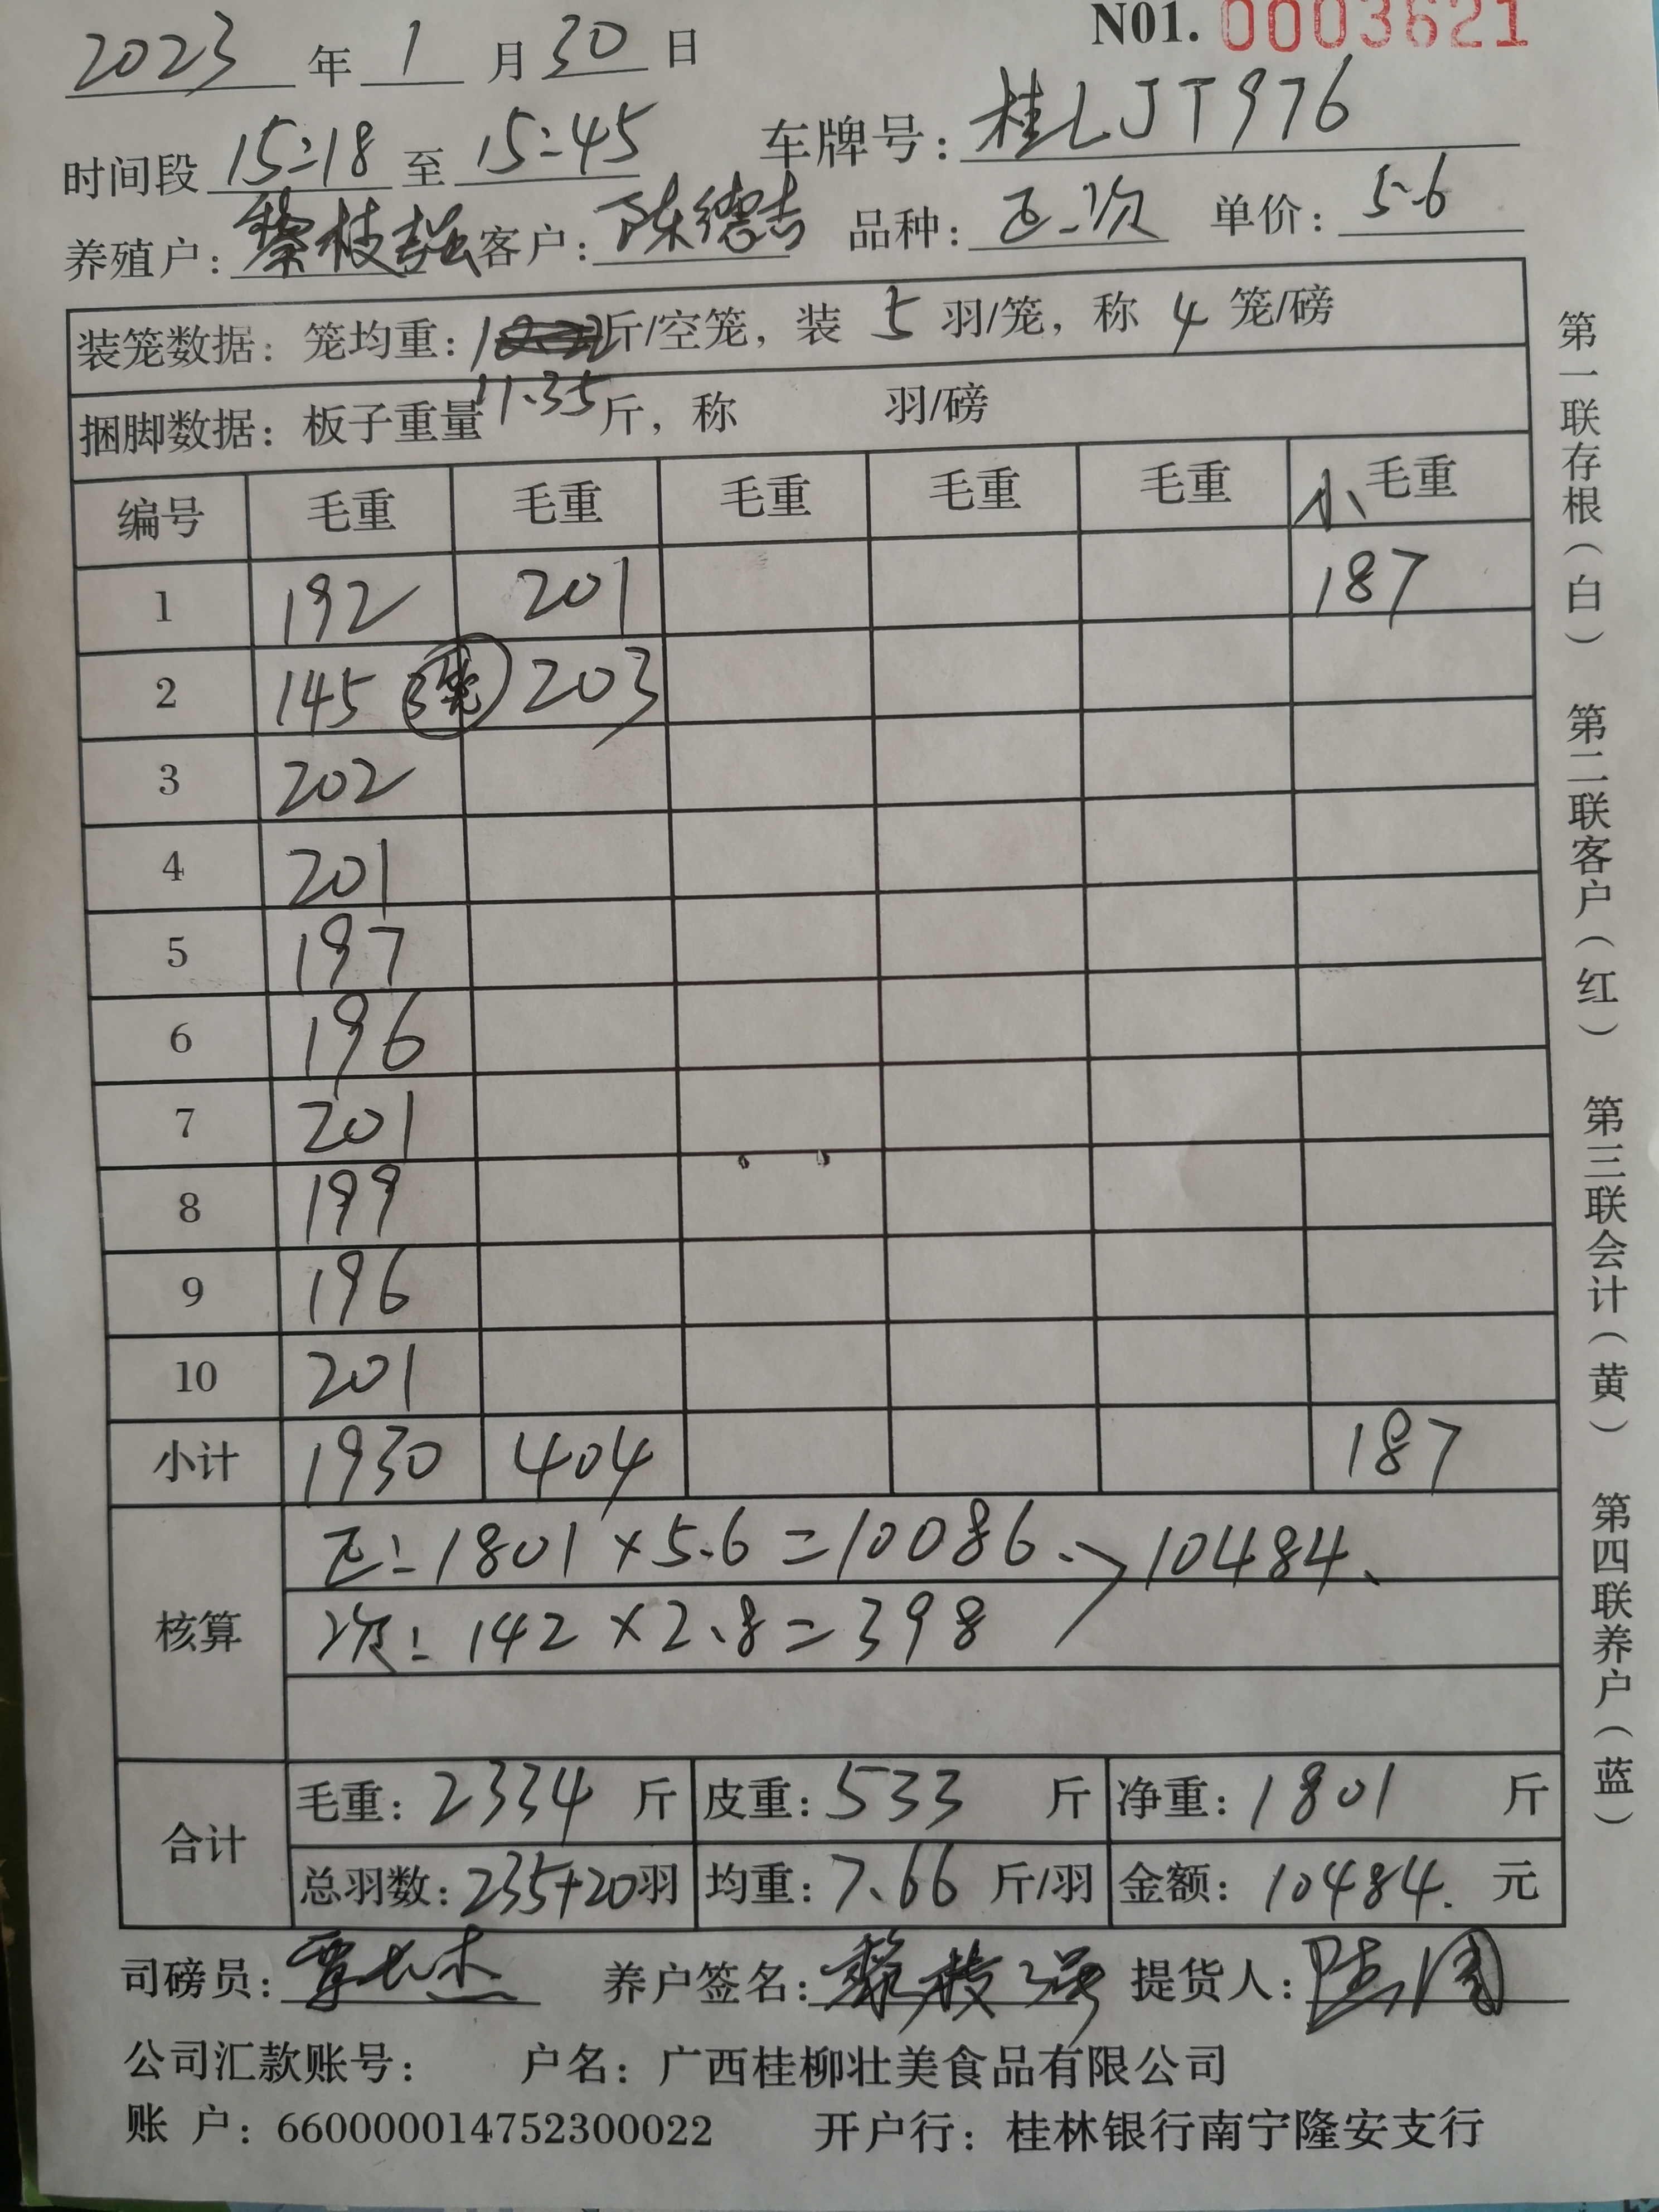 N01. 0003621
2023 年 1 月 30 日
时间段 15:18 至 15:45 车牌号: 桂LJT976
养殖户: 黎枝强 客户: 陈德吉 品种: 正次 单价: 5.6
装笼数据: 笼均重: 斤/空笼, 装 5 羽/笼, 称 4 笼/磅
11.35
捆脚数据: 板子重量 斤, 称 羽/磅
编号 毛重 毛重 毛重 毛重 毛重 小毛重
1 192 201 187
2 145 3笼 203
3 202
4 201
5 197
6 196
7 201
8 199
9 196
10 201
小计 1930 404 187
核算
正: 1801×5.6=10086. 10484.
次: 142×2.8=398
合计
毛重: 2334 斤 皮重: 533 斤 净重: 1801 斤
总羽数: 235+20羽 均重: 7.66 斤/羽 金额: 10484. 元
司磅员: 养户签名: 黎枝强 提货人:
公司汇款账号: 户名: 广西桂柳壮美食品有限公司
账 户: 660000014752300022 开户行: 桂林银行南宁隆安支行
第一联存根(白) 第二联客户(红) 第三联会计(黄) 第四联养户(蓝)